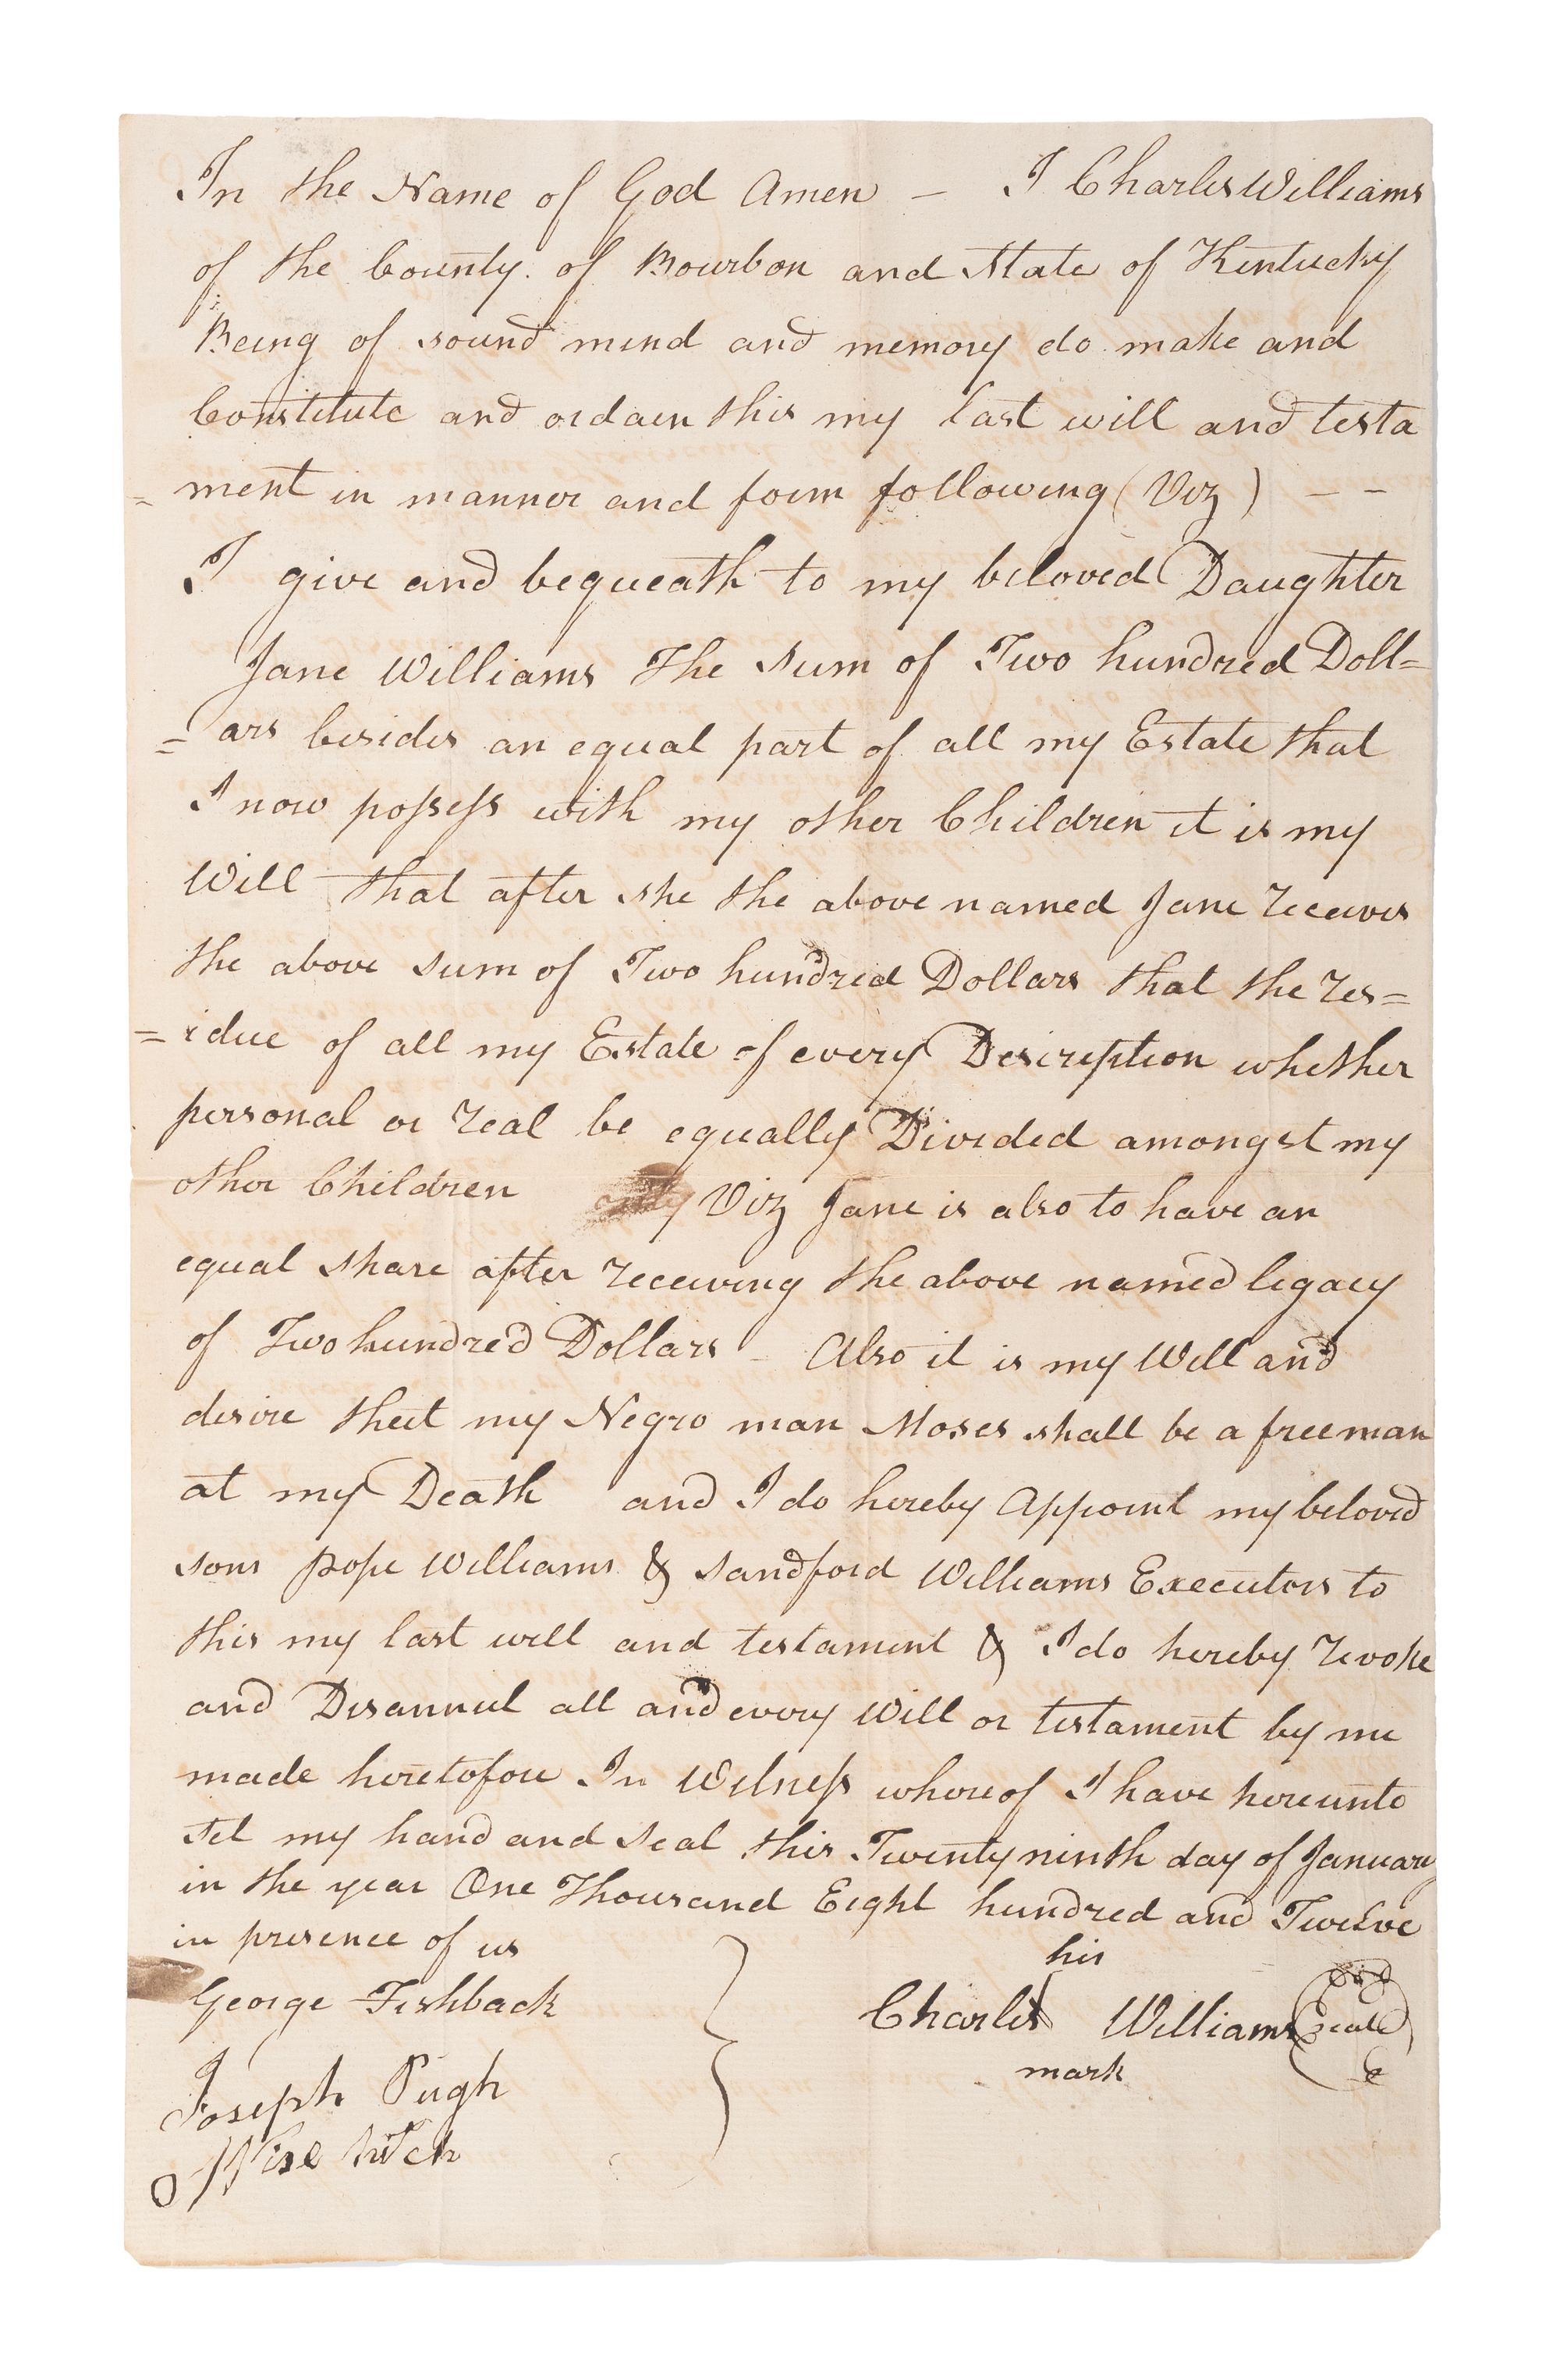 In the Name of God Amen – I Charles Williams
of the County of Bourbon and State of Kentucky
Being of sound mind and memory do make and
Constitute and ordain this my last will and testa
= ment in manner and form following (Viz) – –
I give and bequeath to my beloved Daughter
Jane Williams The sum of Two hundred Doll=
= ars besides an equal part of all my Estate that
I now possess with my other Children it is my
Will that after she the above named Jane receives
the above sum of Two hundred Dollars that the res=
= idue of all my Estate of every Description whether
personal or real be equally Divided amongst my
other Children Viz Jane is also to have an
equal share after receiving the above named legacy
of Two hundred Dollars – Also it is my Will and
desire that my Negro man Moses shall be a free man
at my Death and I do hereby Appoint my beloved
sons Pope Williams & Sandford Williams Executors to
this my last will and testament & I do hereby revoke
and Disannul all and every Will or testament by me
made heretofore In Witness whereof I have hereunto
set my hand and seal this Twenty ninth day of January
in the year One Thousand Eight hundred and Twelve
in presence of us
his
George Fishback
Charles Williams seal
mark
Joseph Pugh